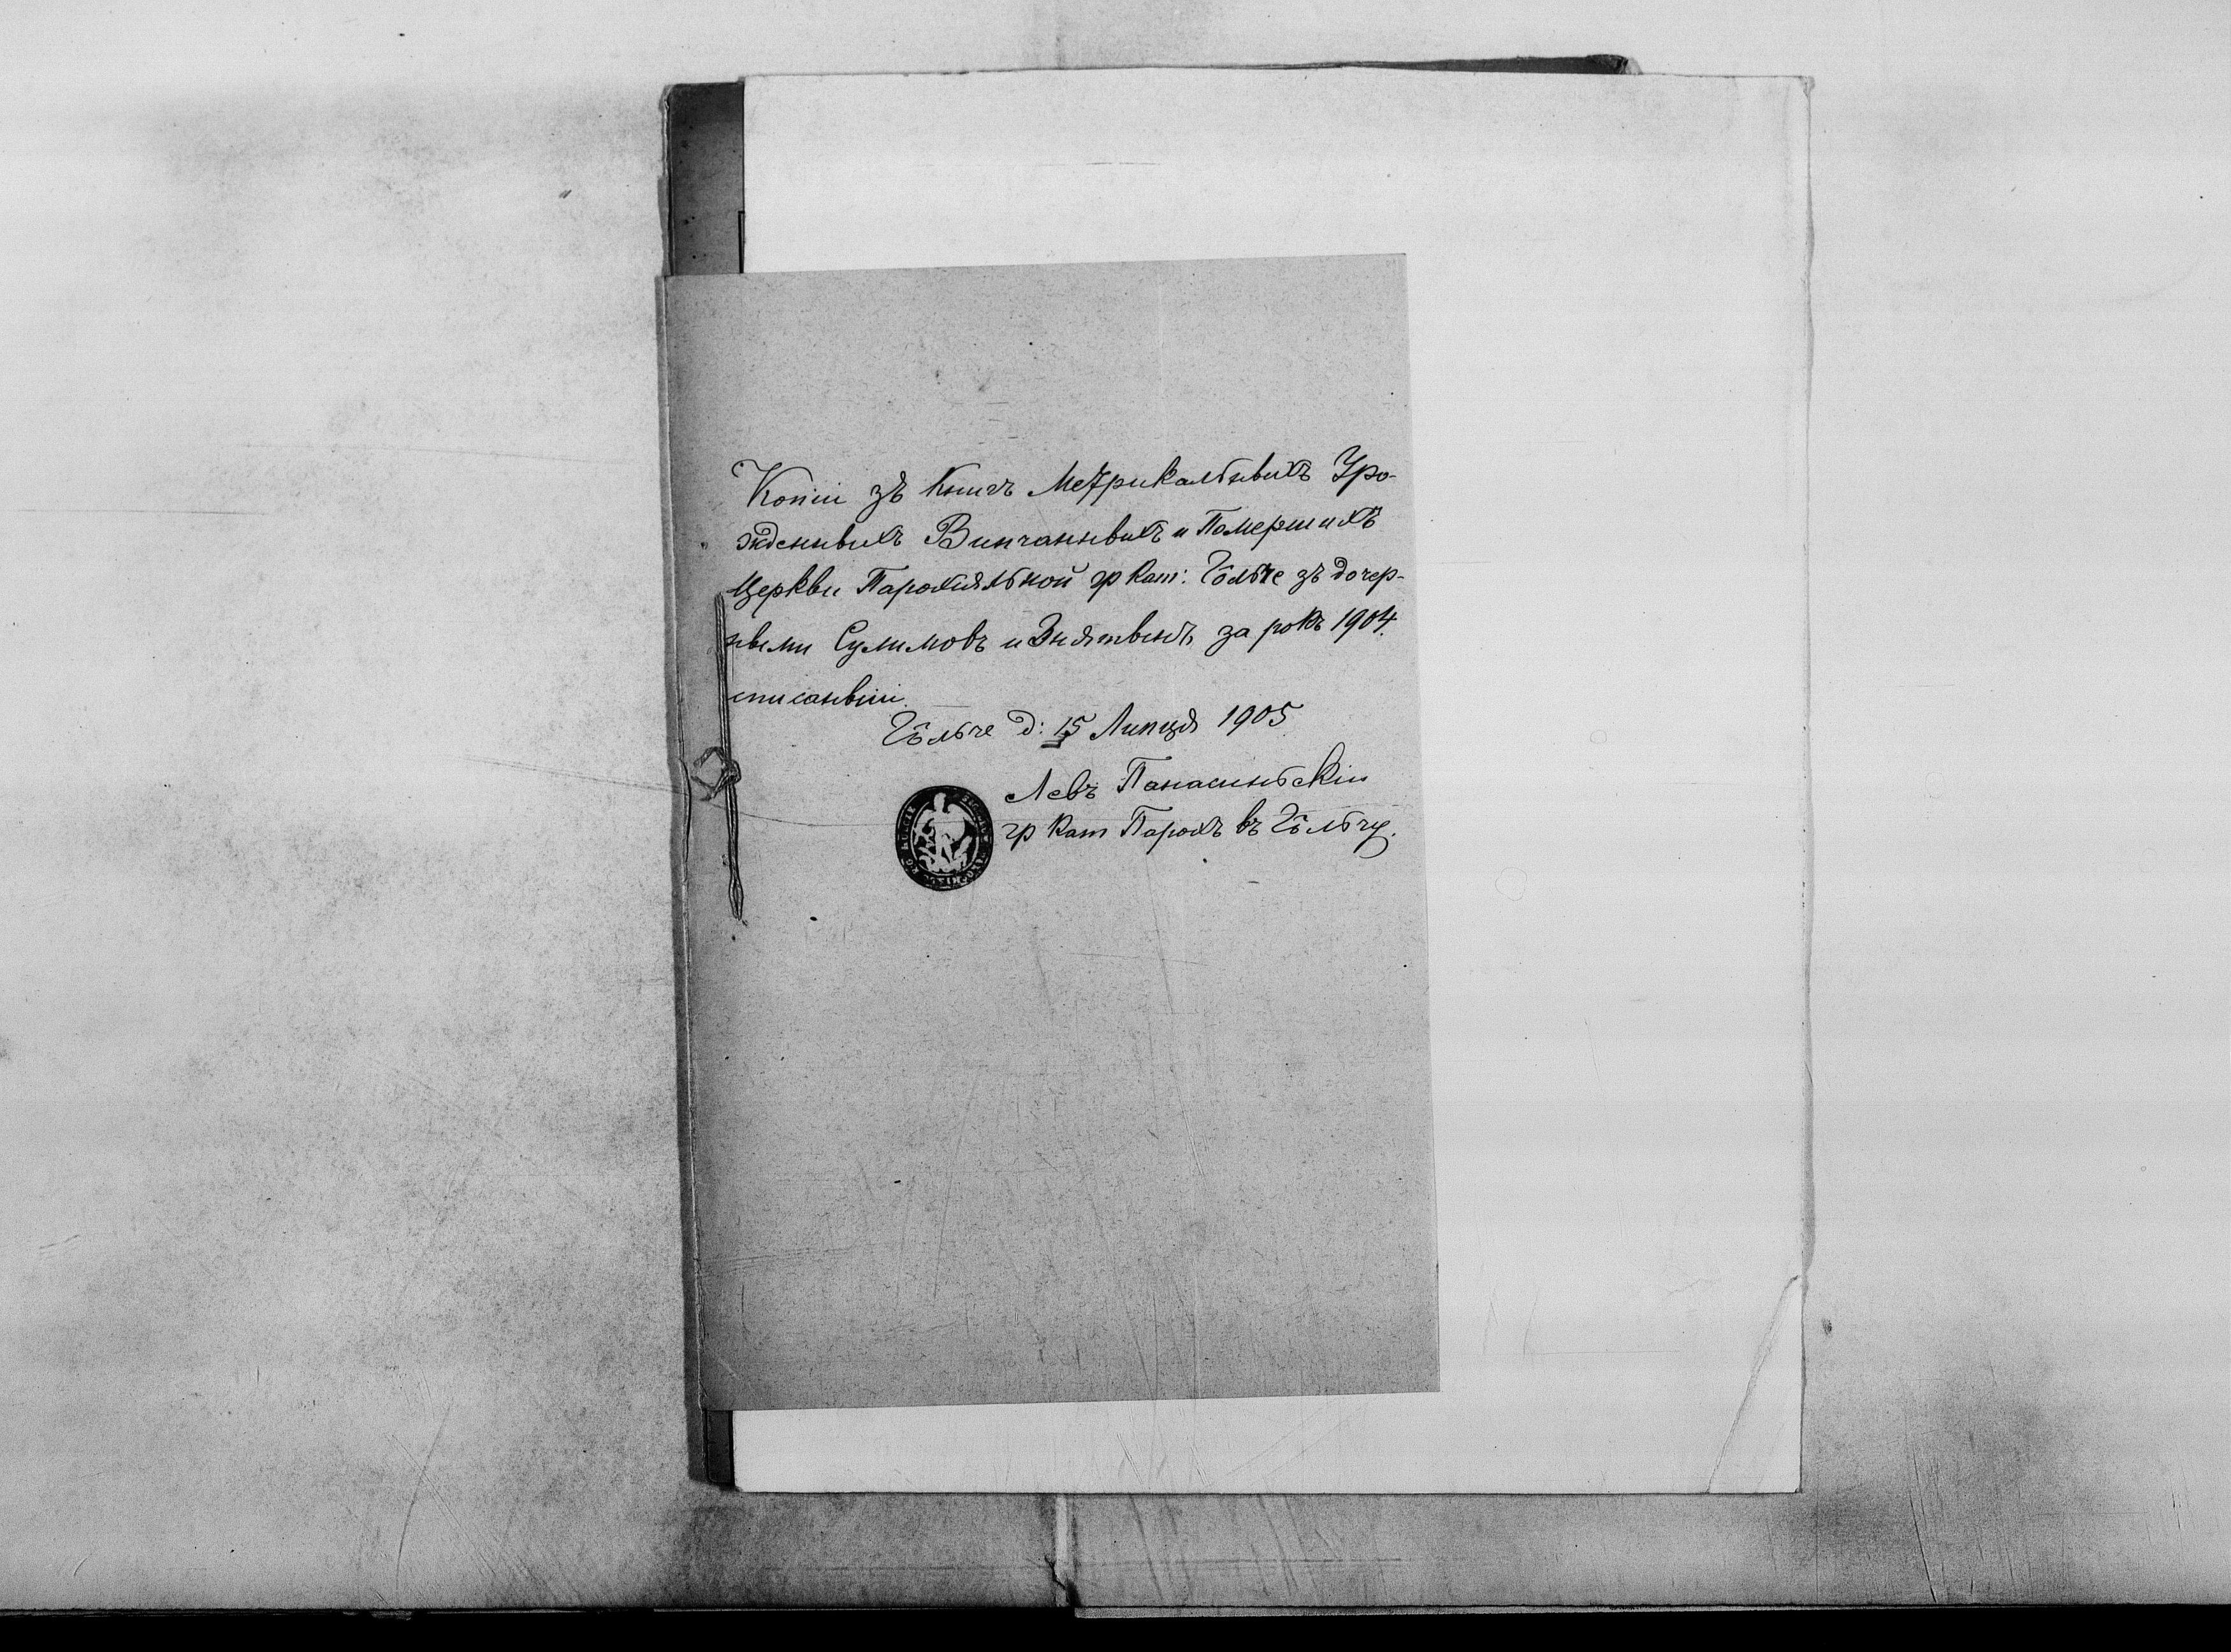 Копіи зъ Книгъ Метрикальныхъ Уро-
жденныхъ Винчанныхъ и Помершихъ
Церкви Парохіяльной гр Кат: Гôльче зъ дочер-
ными Сулимовъ и Знятынь, за рокъ 1904.
списанныи.
Гôльче д: 15 Липця 1905
Левъ Панасиньскіи
гр Кат Парохъ въ Гôльчу.